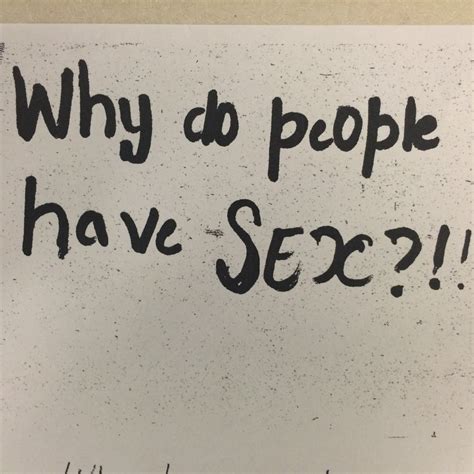 Why do people
have SEX?!!